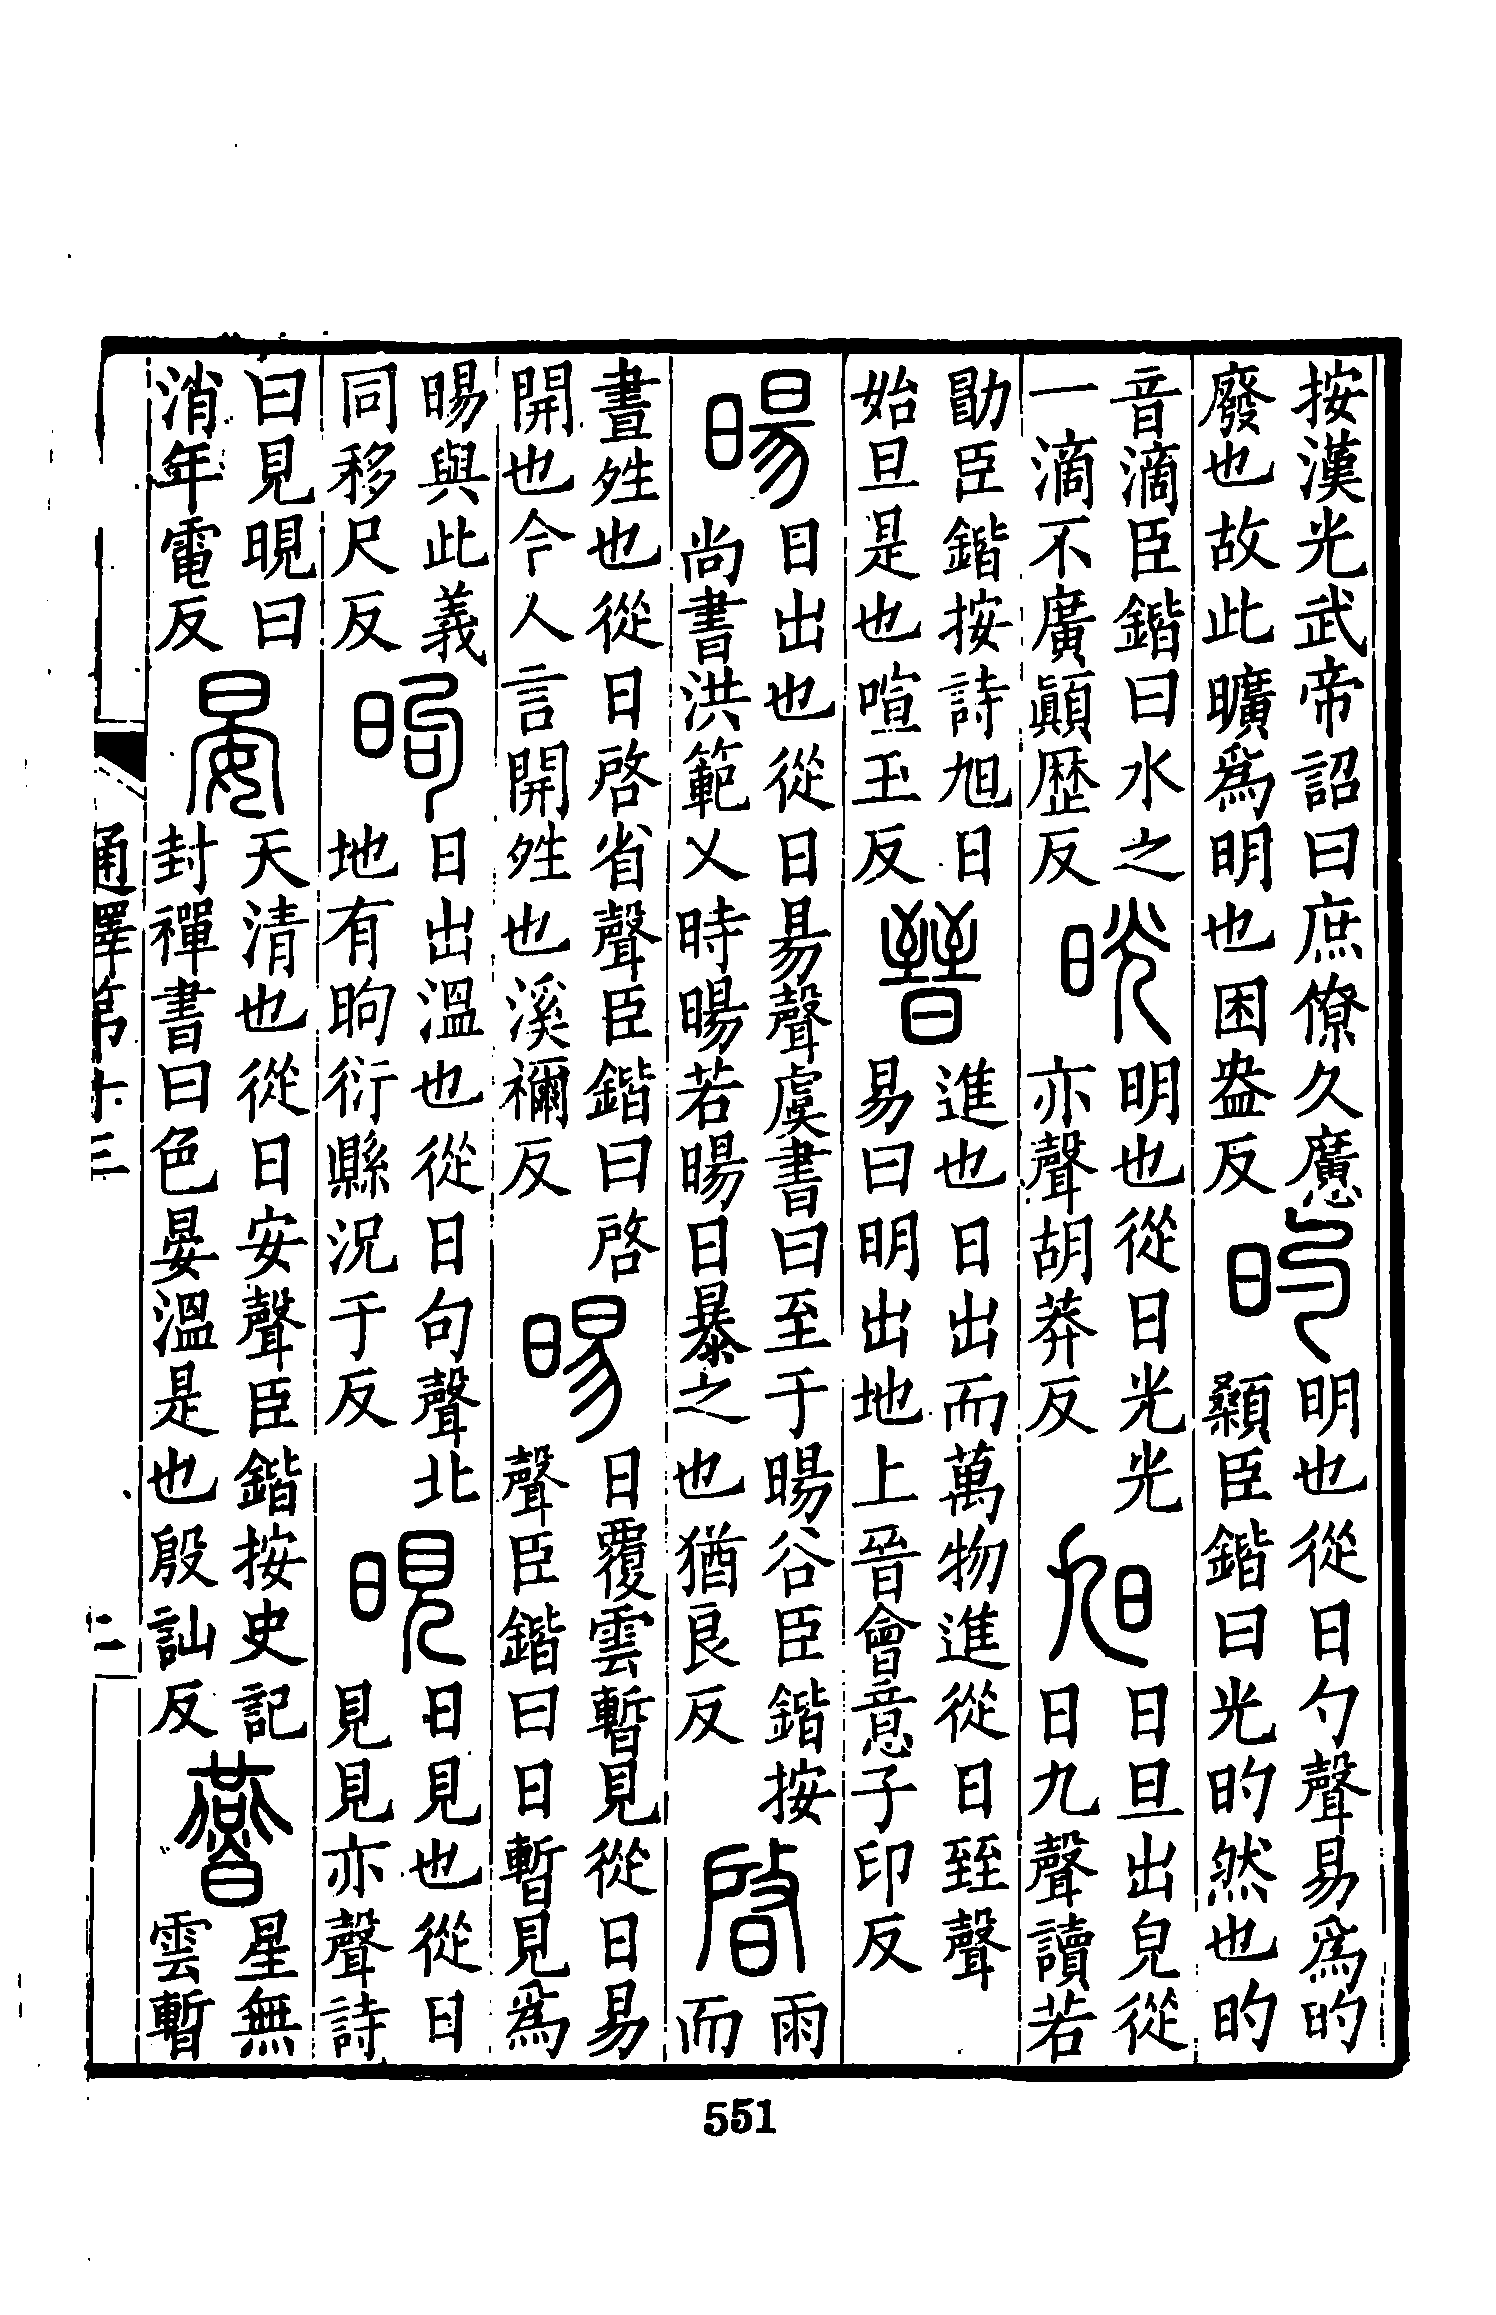 按漢光武帝詔曰庶僚久廣慝
廢也故此曠爲明也困盎反
旳
明也從日勺聲易爲旳
顙臣鍇曰光旳然也旳
音滴臣鍇曰水之
一滴不廣顚歷反
晄
明也從日光光
亦聲胡莽反
旭
日旦出皃從
日九聲讀若
勖臣鍇按詩旭日
始旦是也喧玉反
晉
進也日出而萬物進從日臸聲
易曰明出地上晉會意子印反
暘
日出也從日昜聲虞書曰至于暘谷臣鍇按
尚書洪範乂時暘若暘日暴之也猶良反
晵
雨
而
晝夝也從日啓省聲臣鍇曰啓
開也今人言開夝也溪禰反
晹
日覆雲暫見從日易
聲臣鍇曰日暫見爲
晹與此義
同移尺反
昫
日出溫也從日句聲北
地有昫衍縣況于反
晛
日見也從日
見見亦聲詩
曰見晛曰
消年電反
晏
天清也從日安聲臣鍇按史記
封禪書曰色晏溫是也殷訕反
㬫
星無
雲暫
通釋第十三
二
551